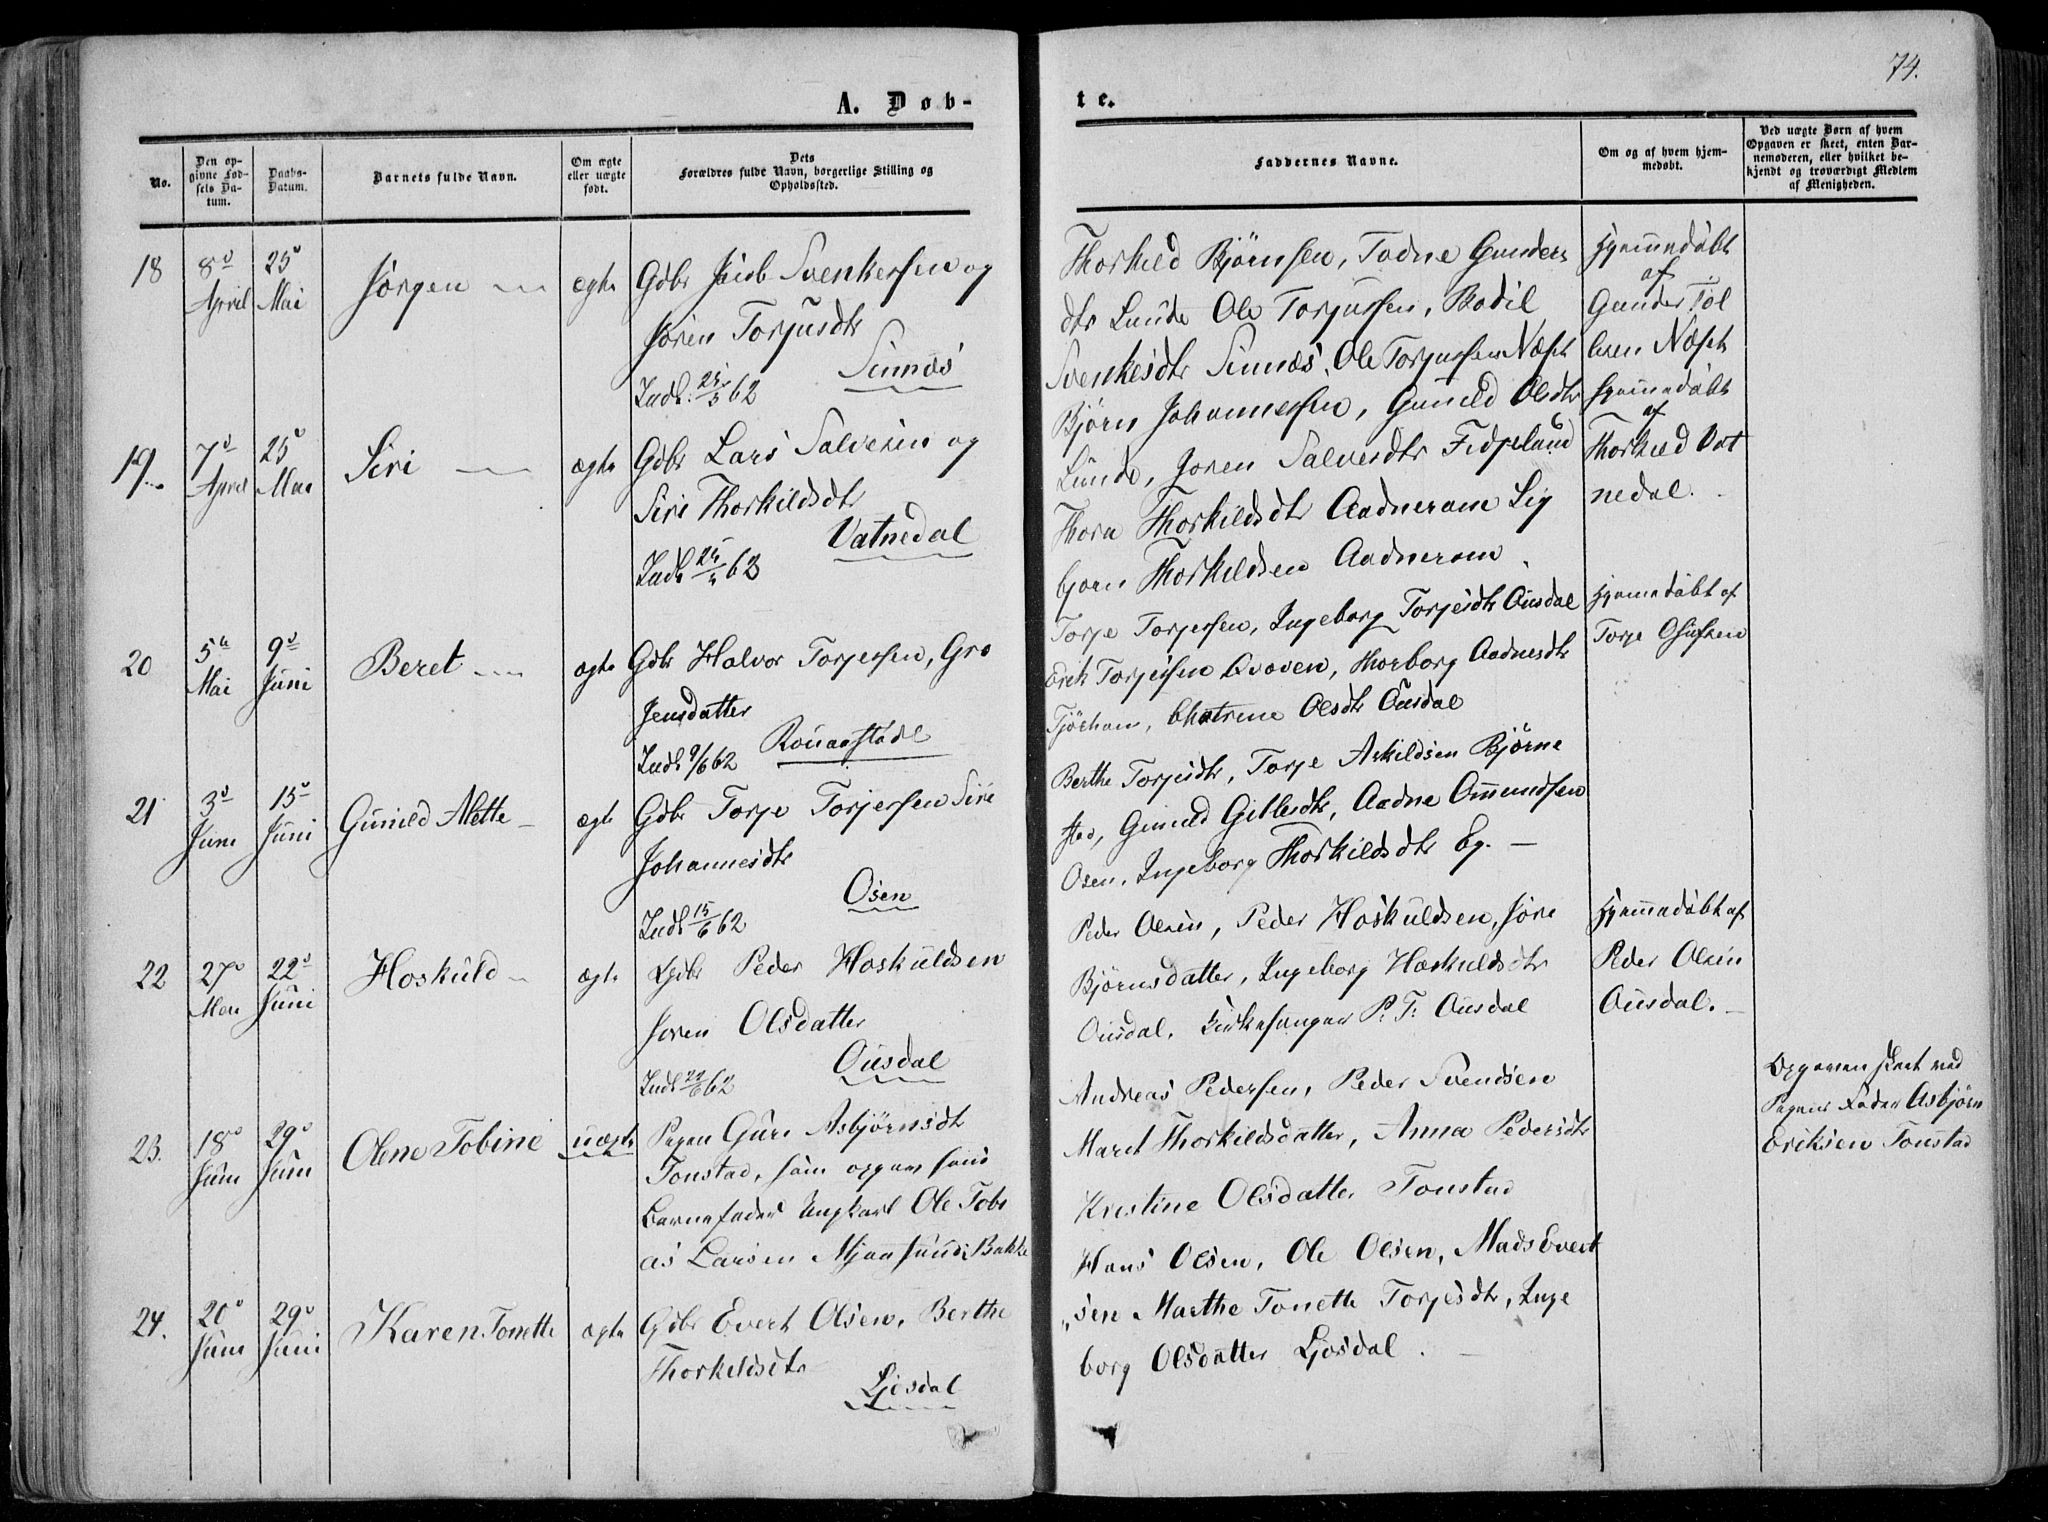 74.
A. Døb-
te.
No.
Den opgivne Fødsels Datum.
Daabs-Datum.
Barnets fulde Navn.
Om ægte eller uægte født.
Dets Forældres fulde Navn, borgerlige Stilling og Opholdssted.
Faddernes Navne.
Om og af hvem hjemmedøbt.
Ved uægte Børn af hvem Opgaven er skeet, enten Barnemoderen, eller hvilket bekjendt og troværdigt Medlem af Menigheden.
18 8d April 25d Mai Jørgen ægte Gdbr Jacob Svenkessen og
Jøren Torjusdtr
Sinnes
Indl. 25/5 62
Thorkild Bjørnsen, Todne Gunders
dtr Lunde Ole Torjussen, Bodil
Svenkesdtr Sinnes, Ole Torjussen Næset
Hjemmedøbt
af
Gunder Tol
lesen Næset
19. 7d April 25d Mai Siri ægte Gdbr Lars Salvesen og
Siri Thorkildsdtr
Vatnedal
Indl 25/5 62
Bjørn Johannessen, Gunild Olsdtr
Lunde, Joren Salvesdtr Fidjeland
Thora Thorkildsdtr Aadneram Sig
bjorn Thorkildsen Aadneram
Hjemmedøbt
af
Thorkild Vat
nedal.
20 5te Mai 9d Juni Beret ægte Gdbr Halvor Torjessen, Gro
Jensdatter
Indl 9/6 62
Torje Torjessen, Ingeborg Torjesdtr Ousdal
Erik Torjessen Qvæven, Thorborg Aadnesdtr
Tjørhom, Chatrine Olsdtr Ousdal
Hjemmedøbt af
Torje Osufsen
21 3d Juni 15d Juni Gunild Alette ægte Gdbr Torje Torjessen Siri
Johannesdtr
Osen
Indl 15/6 62
Berthe Torjesdtr, Torje Askildsen Bjørne
stad, Gunild Gitlesdtr, Aadne Ommundsen
Osen, Ingeborg Thorkildsdtr Eg.
22 27d Mai 22d Juni Hoskuld ægte Gdbr Peder Hoskuldsen
Joren Olsdatter
Ousdal
Indl 22/6 62
Peder Olsen, Peder Hoskuldsen, Jøre
Bjørnsdatter, Ingeborg Hoskuldsdtr
Ousdal, Kirkesanger P. T. Ousdal
Hjemmedøbt af
Peder Olsen
Ousdal.
23. 18d Juni 29d Juni Olene Tobine uægte Pigen Guri Asbjørnsdtr
Tonstad, som opgav som
Barnefader Ungkarl Ole Tobi
as Larsen Mjaasund i Bakke
Andreas Pedersen, Peder Svendsen
Maret Thorkildsdatter, Anna Pedersdtr
Kristine Olsdatter Tonstad
Opgaven skeet ved
Pigens Fader Asbjørn
Eriksen Tonstad
24. 20d Juni 29d Juni Karen Tonette ægte Gdbr Evert Olsen, Berthe
Thorkildsdtr
Ljosdal
Hans Olsen, Ole Olsen, Mads Evert
sen Marthe Tonette Torjesdtr, Inge
borg Olsdatter Ljosdal.